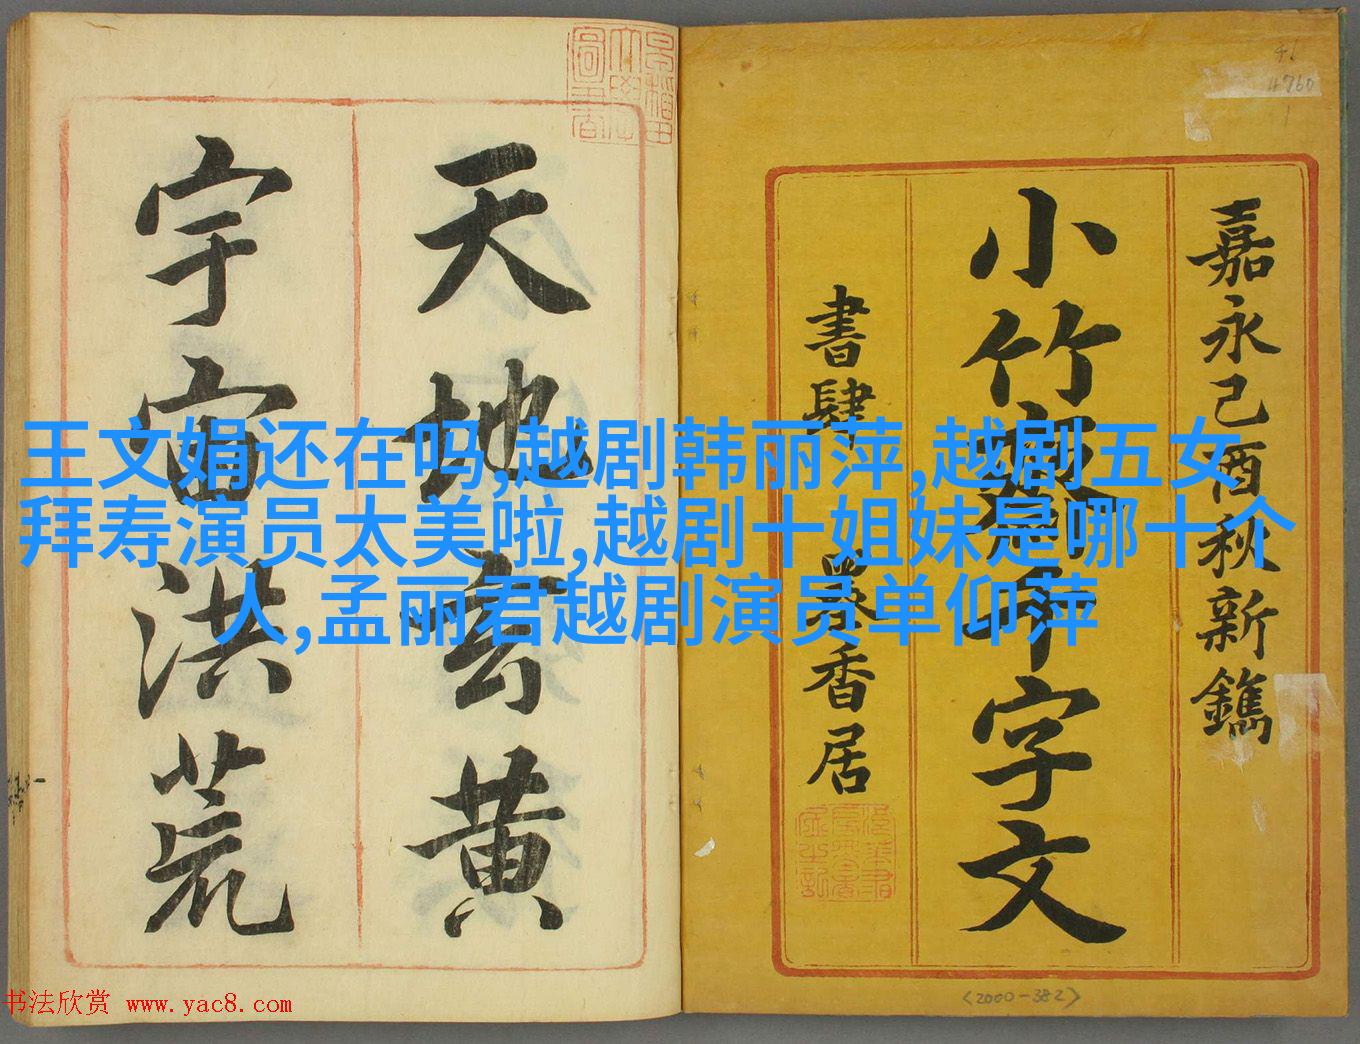 嘉永己酉秋新鐫
小竹齋千字文
書肆 墨香居
天地玄黄
宇宙洪荒
王文娟还在吗,越剧韩丽萍,越剧五女
拜寿演员太美啦,越剧十姐妹是哪十个
人,孟丽君越剧演员单仰萍
46
4760
<2000-382>
书法欣赏 www.yac8.com